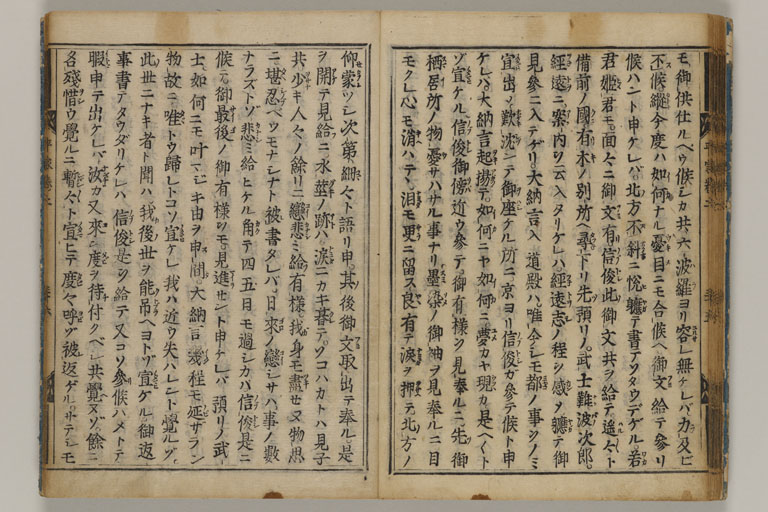 モ御供仕ルヘウ候シカ共六波羅ヨリ容レ無ケレバ力及ビ
不候縦今度ハ如何ナル憂目ニモ合候ヘ御文ヲ給テ参リ
候ハント申ケレバ北方不斜ニ悦軈テ書テソタウデゲル若
君姫君モ面々ニ御文有信俊此御文共ヲ給テ遥々ト
備前ノ国有木ノ別所ヘ尋ド下リ先預リノ武士難波次郎
経遠ニ案内ヲ云入タリケレハ経遠志ノ程ヲ感ヲ軈テ御
見参ニ入テゲリ大納言入道殿ハ唯今シモ都ノ事ヲノミ
宣出シ歎沈ンテ御座ケル所ニ京ヨリ信俊カ参テ候ト申
ケレバ大納言起揚テ如何ニヤ如何ニ夢カヤ現カ是ヘ〱ト
ゾ宣ケル信俊御傍近ウ参テ御有様ヲ見奉ルニ先御
栖居所ノ物憂サハサル事ナリ墨染ノ御袖ヲ見奉ルニ目
モクレ心モ消ハテヽ泪モ更ニ留ス良有テ涙ヲ押テ北方ノ
仰蒙ツシ次第細々ト語リ申其後御文取出テ奉ル是
ヲ開テ見給ニ水茎ノ跡ハ涙ニカキ暮テソコハカトハ見子
共少キ人々ノ餘リニ戀悲ミ給有様我身モ盡セヌ物思
ニ堪忍ベウモナシナト被書タレバ日来ノ戀シサハ事ノ数
ナラストゾ悲ミ給ヒケル角テ四五日モ過シカバ信俊是ニ
候テ御最後ノ御有様ヲモ見進セント申ケレバ預リノ武
士如何ニモ叶マジキ由ヲ申間大納言幾程モ延サラン
物故ニ唯トウ歸レトコソ宣ケレ我ハ近ウ失ハレント覺ルゾ
此世ニナキ者ト聞ハ我後世ヲ能吊ヘヨトゾ宣ケル御返
事書テタウダリケレハ信俊是ヲ給テ又コソ参候ハメトテ
暇申テ出ケレバ汝カ又来ン度ヲ待付クベシ共覺ヌゾ餘ニ
名殘惜ウ覺ルニ暫々ト宣ヒテ度々呼ゾ被返ゲルサテシモ